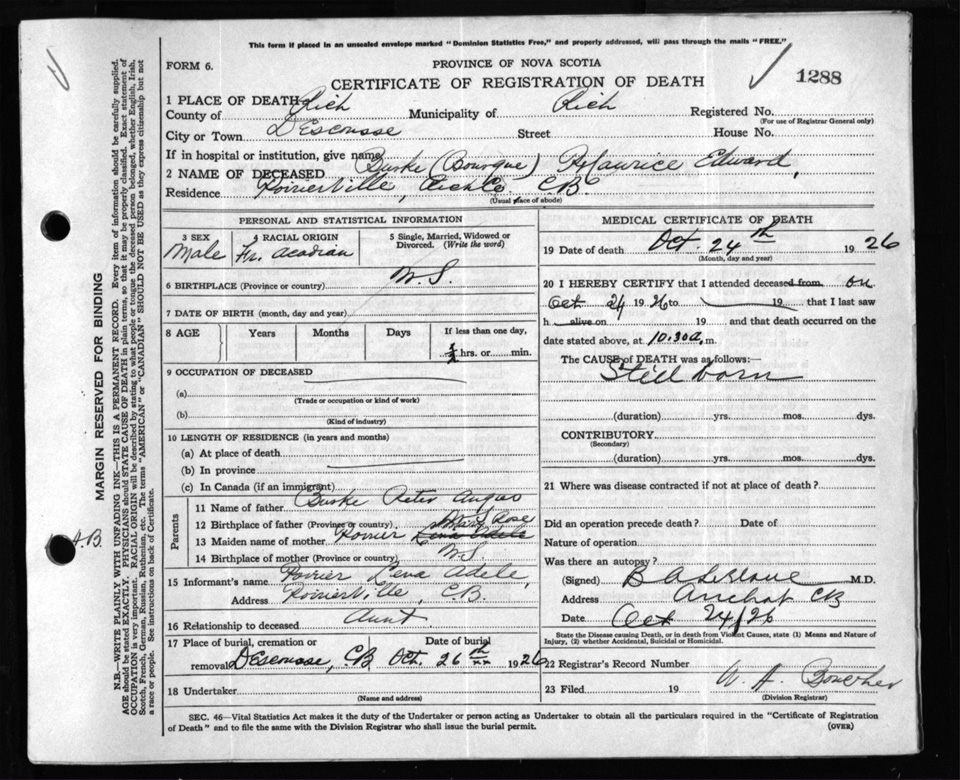 This form if placed in an unsealed envelope marked "Dominion Statistics Free," and properly addressed, will pass through the mails "FREE."
FORM 6.
PROVINCE OF NOVA SCOTIA
CERTIFICATE OF REGISTRATION OF DEATH
1288
1 PLACE OF DEATH
County of Rich Municipality of Rich Registered No.
(For use of Registrar General only)
City or Town Descousse Street House No.
If in hospital or institution, give name
2 NAME OF DECEASED Burke (Bourque) Maurice Edward,
Residence Poirierville, Rich Co. C.B.
(Usual place of abode)
PERSONAL AND STATISTICAL INFORMATION
3 SEX Male
4 RACIAL ORIGIN Fr. Acadian
5 Single, Married, Widowed or Divorced. (Write the word)
6 BIRTHPLACE (Province or country) N.S.
7 DATE OF BIRTH (month, day and year)
8 AGE Years Months Days If less than one day, ½ hrs. or min.
9 OCCUPATION OF DECEASED
(a)
(Trade or occupation or kind of work)
(b)
(Kind of industry)
10 LENGTH OF RESIDENCE (in years and months)
(a) At place of death
(b) In province
(c) In Canada (if an immigrant)
Parents
11 Name of father Burke Peter Angus
12 Birthplace of father (Province or country)
13 Maiden name of mother Poirier Mary Rose
14 Birthplace of mother (Province or country) N.S.
15 Informant's name Poirier Lena Adele,
Address Poirierville, C.B.
16 Relationship to deceased Aunt
17 Place of burial, cremation or removal Descousse, C.B. Date of burial Oct. 26th 1926
18 Undertaker
(Name and address)
MEDICAL CERTIFICATE OF DEATH
19 Date of death Oct 24th 1926
(Month, day and year)
20 I HEREBY CERTIFY that I attended deceased from on
Oct 24 1926 to 19 that I last saw
h alive on 19 and that death occurred on the
date stated above, at 10.30 a. m.
The CAUSE of DEATH was as follows:—
Still born
(duration) yrs. mos. dys.
CONTRIBUTORY
(Secondary)
(duration) yrs. mos. dys.
21 Where was disease contracted if not at place of death?
Did an operation precede death? Date of
Nature of operation
Was there an autopsy?
(Signed) B A LeBlanc M.D.
Address Arichat CB
Date Oct 24/26
State the Disease causing Death, or in death from Violent Causes, state (1) Means and Nature of Injury, (2) whether Accidental, Suicidal or Homicidal.
22 Registrar's Record Number
23 Filed 19
(Division Registrar)
SEC. 46—Vital Statistics Act makes it the duty of the Undertaker or person acting as Undertaker to obtain all the particulars required in the "Certificate of Registration
of Death" and to file the same with the Division Registrar who shall issue the burial permit.
(OVER)
MARGIN RESERVED FOR BINDING
N.B.—WRITE PLAINLY WITH UNFADING INK—THIS IS A PERMANENT RECORD. Every item of information should be carefully supplied.
AGE should be stated EXACTLY. PHYSICIANS should STATE CAUSE OF DEATH in plain terms, so that it may be properly classified. Exact statement of
OCCUPATION is very important. RACIAL ORIGIN will be described by stating to what people or tongue the deceased person belonged, whether English, Irish,
Scotch, French, German, Russian, Ruthenian, etc. The terms "AMERICAN" or "CANADIAN" SHOULD NOT BE USED as they express citizenship but not
a race or people. See instructions on back of Certificate.
A.B.